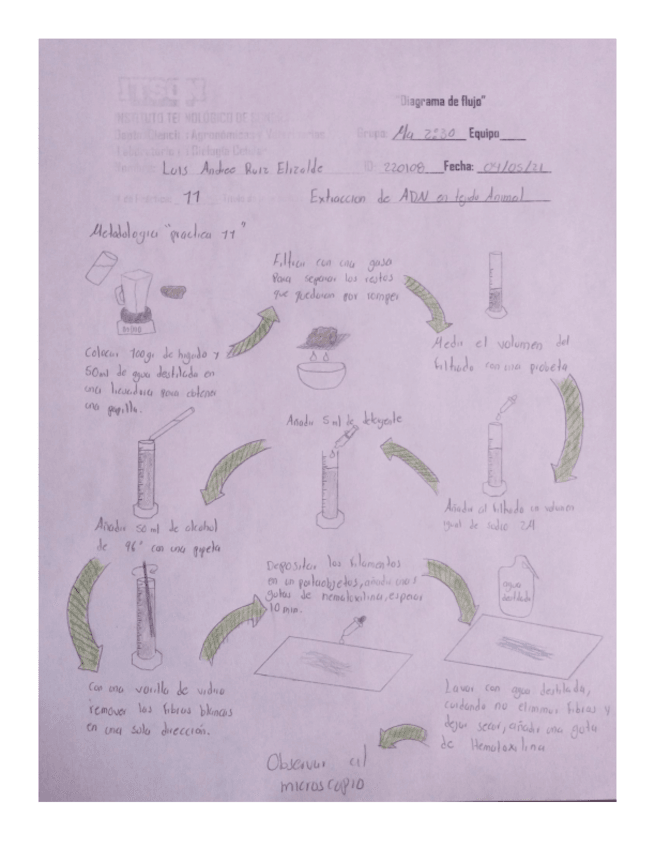 "Diagrama de flujo"
Grupo Ma 2:30 Equipo
Luis Andree Ruiz Elizalde ID: 220108 Fecha: 04/05/21
11 Extraccion de ADN en tejido Animal
Metodologia "practica 11"
Colocar 100gr de higado y
50ml de agua destilada en
una licuadora para obtener
una papilla.
Filtrar con una gasa
Para separar los restos
que quedaron por romper
Medir el volumen del
filtrado con una probeta
Añadir al filtrado un volumen
igual de sodio 2M
Añadir 5 ml de detergente
Añadir 50 ml de alcohol
de 96° con una pipeta
Con una varilla de vidrio
remover las fibras blancas
en una sola dirección.
Depositar los filamentos
en un portaobjetos, añadir unas
gotas de hematoxilina, esperar
10 min.
agua
destilada
Lavar con agua destilada,
cuidando no eliminar fibras y
dejar secar, añadir una gota
de Hemotoxilina
Observar al
microscopio